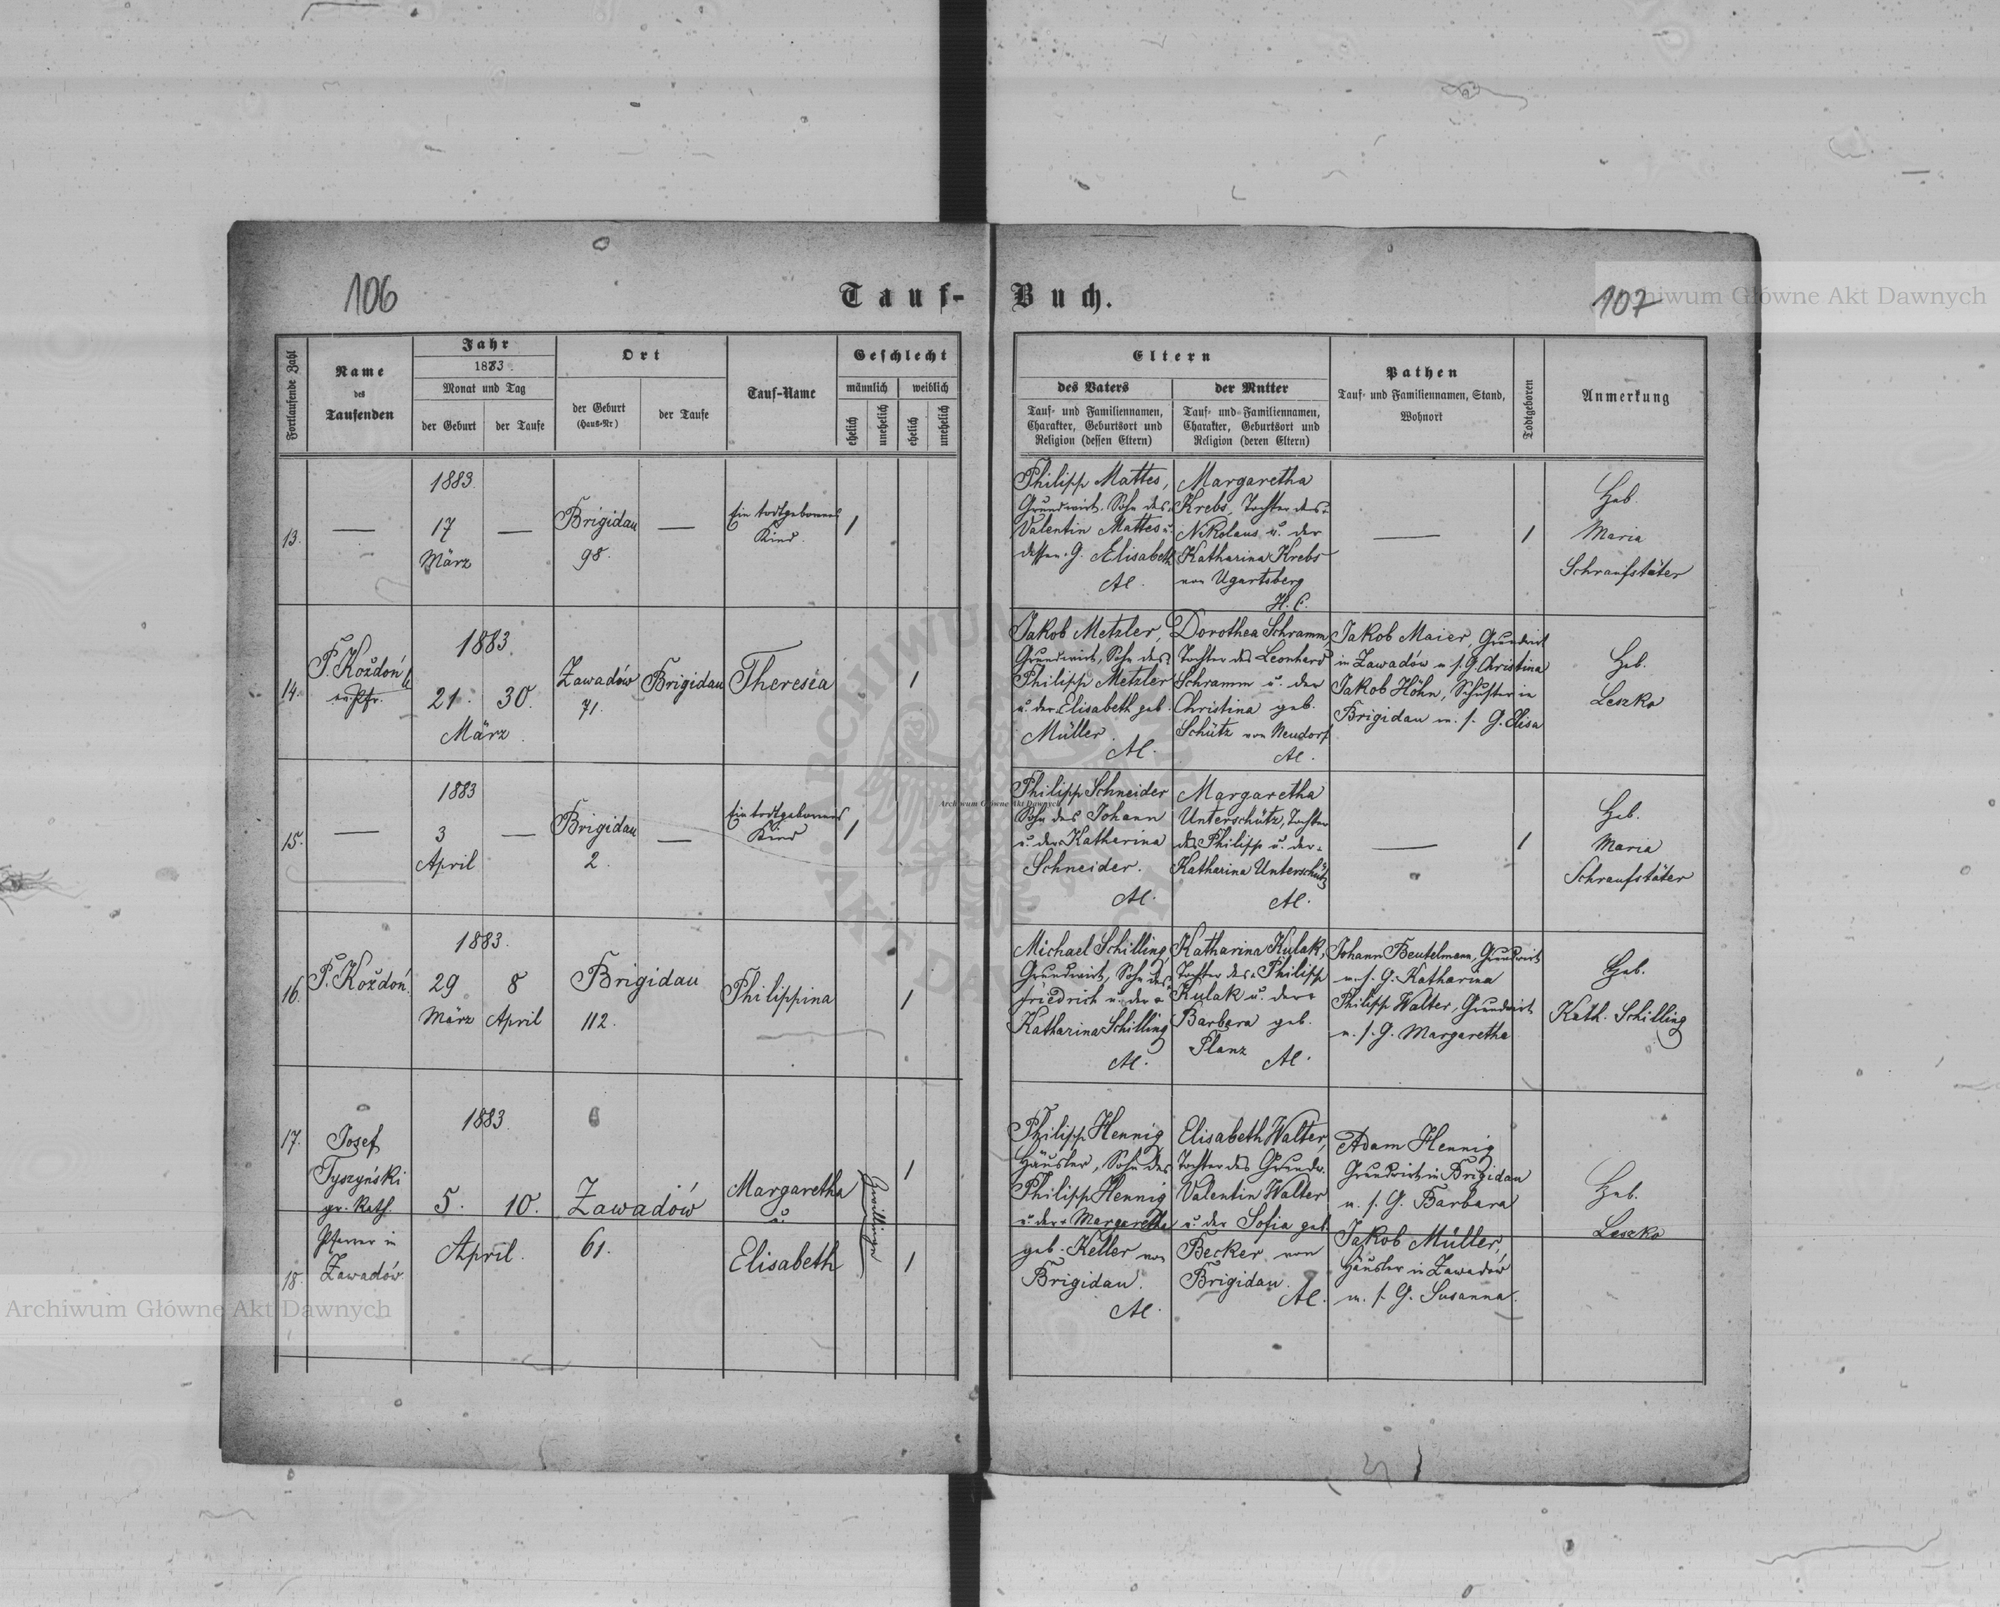 106
Tauf-
Buch.
107
Archiwum Główne Akt Dawnych
Fortlaufende Zahl
Name
des
Taufenden
Jahr
1883
Monat und Tag
der Geburt
der Taufe
Ort
der Geburt
(Haus-Nr)
der Taufe
Tauf-Name
Geschlecht
männlich
weiblich
ehelich
unehelich
ehelich
unehelich
Eltern
des Vaters
Tauf- und Familiennamen,
Charakter, Geburtsort und
Religion (dessen Eltern)
der Mutter
Tauf- und Familiennamen,
Charakter, Geburtsort und
Religion (deren Eltern)
Pathen
Tauf- und Familiennamen, Stand,
Wohnort
Todtgeboren
Anmerkung
13.
—
1883
17
März
—
Brigidau
98.
—
Ein todtgebornes
Kind.
1
Philipp Mattes,
Grundwirt. Sohn des
Valentin Mattes u.
dessen G. Elisabeth
AC.
Margaretha
Krebs, Tochter des
Nikolaus u. der
Katharina Krebs
von Ugartsberg
H. C.
—
1
Heb.
Maria
Schraufstäter
14.
P. Kożdoń
ev. Pfr.
1883.
21. 30.
März
Zawadów
71.
Brigidau
Theresia
1
Jakob Metzler,
Grundwirt, Sohn des
Philipp Metzler
u. der Elisabeth geb.
Müller
AC.
Dorothea Schramm,
Tochter des Leonhard
Schramm u. der
Christina geb.
Schütz von Neudorf
AC.
Jakob Maier, Grundwirt
in Zawadów u. s. G. Christina
Jakob Höhn, Schuster in
Brigidau m. s. G. Elisa
Heb.
Leszko
15.
—
1883
3
April
—
Brigidau
2.
—
Ein todtgebornes
Kind
1
Philipp Schneider
Sohn des Johann
u. der Katharina
Schneider.
AC.
Margaretha
Unterschütz, Tochter
des Philipp u. der
Katharina Unterschütz
AC.
—
1
Heb.
Maria
Schraufstäter
16.
P. Kożdoń
1883.
29 8
März April
Brigidau
112.
Philippina
1
Michael Schilling
Grundwirt, Sohn des
Friedrich u. der
Katharina Schilling
AC.
Katharina Kulak,
Tochter des Philipp
Kulak u. der
Barbara geb.
Planz
AC.
Johann Beutelmann, Grundwirt
m. s. G. Katharina
Philipp Walter, Grundwirt
m. s. G. Margaretha
Heb.
Kath. Schilling
17.
18.
Josef
Tyszyński
gr. Kath.
Pfarrer in
Zawadów
1883.
5. 10.
April.
Zawadów
61.
Margaretha
u.
Elisabeth
Zwillinge
1
1
Philipp Hennig
Häusler, Sohn des
Philipp Hennig
u. der Margaretha
geb. Keller von
Brigidau.
AC.
Elisabeth Walter,
Tochter des Grundw.
Valentin Walter
u. der Sofia geb.
Becker von
Brigidau.
AC.
Adam Hennig
Grundwirt in Brigidau
m. s. G. Barbara
Jakob Müller,
Häusler in Zawadów
m. s. G. Susanna.
Heb.
Leszko
Archiwum Główne Akt Dawnych
Archiwum Główne Akt Dawnych